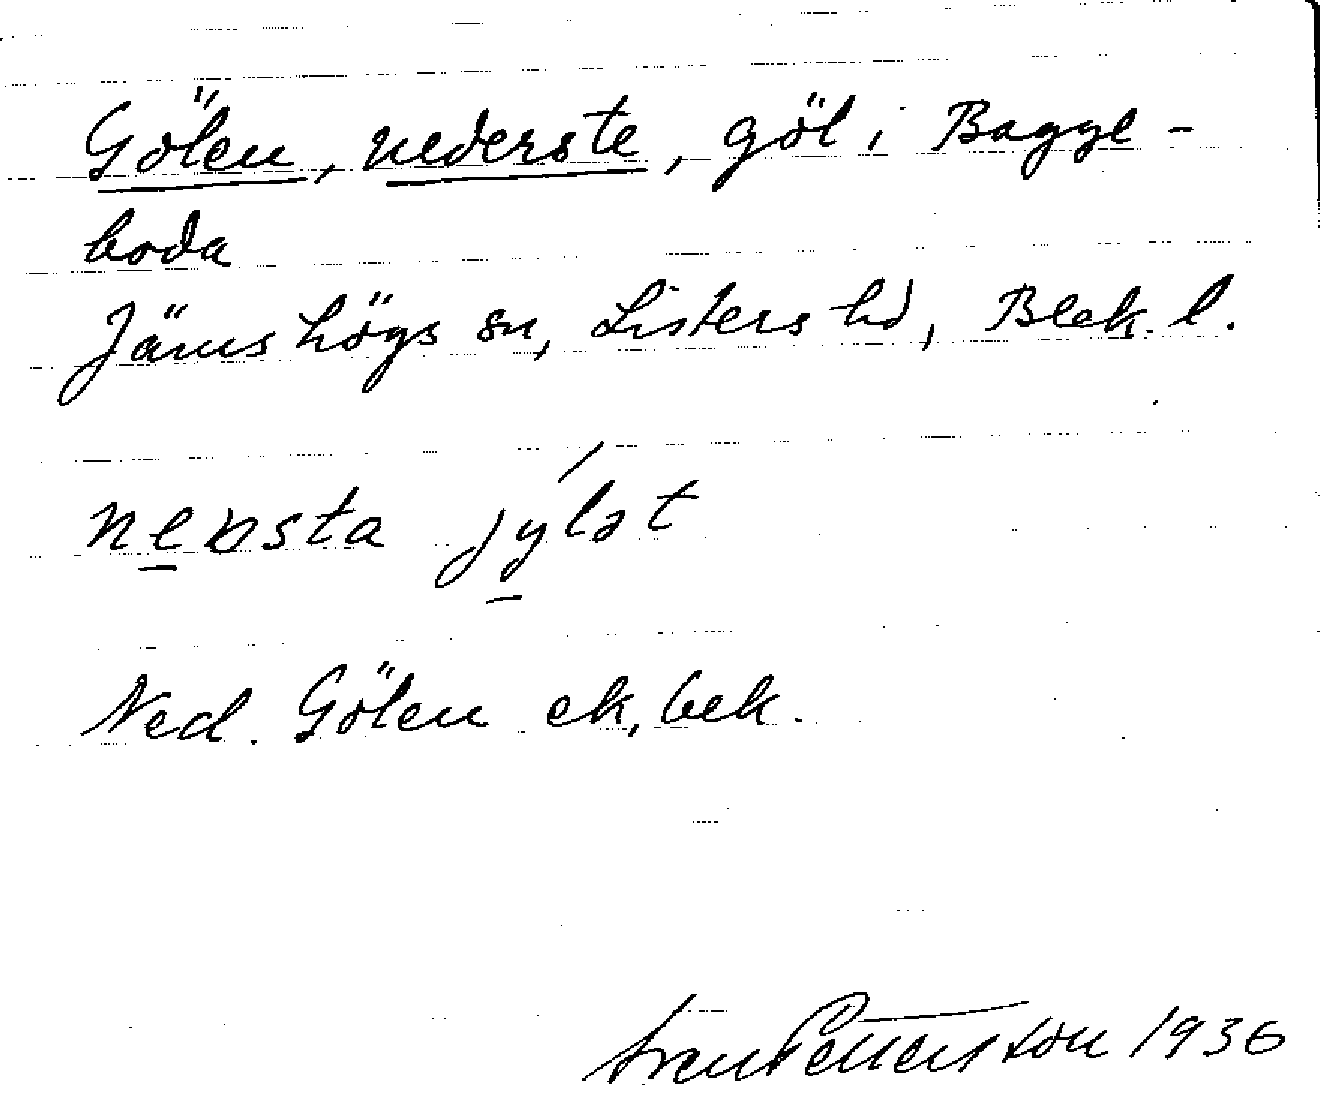 Gölen, nederste, göl i Bagge-
boda
Jämshögs sn, Listers hd, Blek. l.
jýlət
Ned. Gölen ek. bek.
Sven Petterson 1936